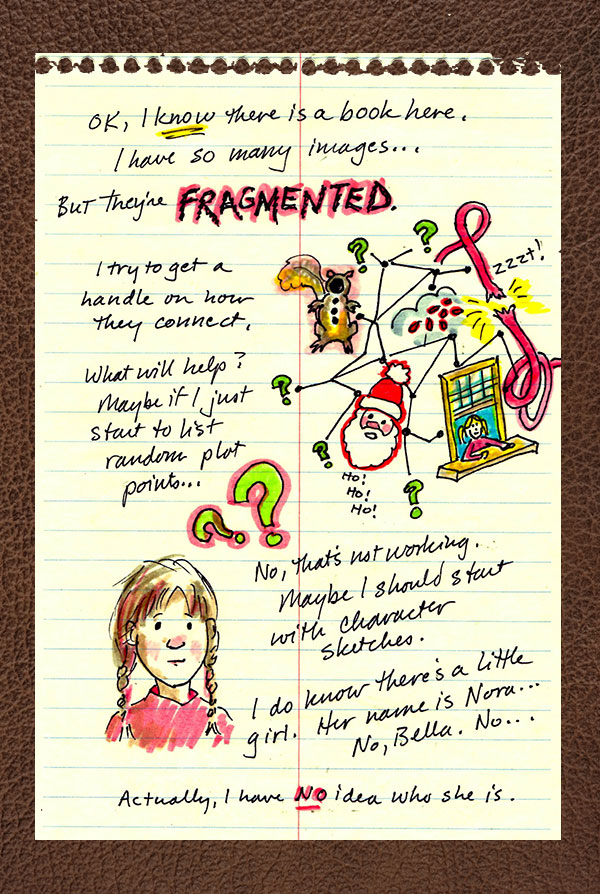 OK, I know there is a book here.
I have so many images...
But they're FRAGMENTED.
I try to get a
handle on how
they connect.
What will help?
Maybe if I just
start to list
random plot
points...
?
?
zzzt!
?
?
Ho!
Ho!
Ho!
?
?
?
No, that's not working.
Maybe I should start
with character
sketches.
I do know there's a little
girl. Her name is Nora...
No, Bella. No...
Actually, I have NO idea who she is.